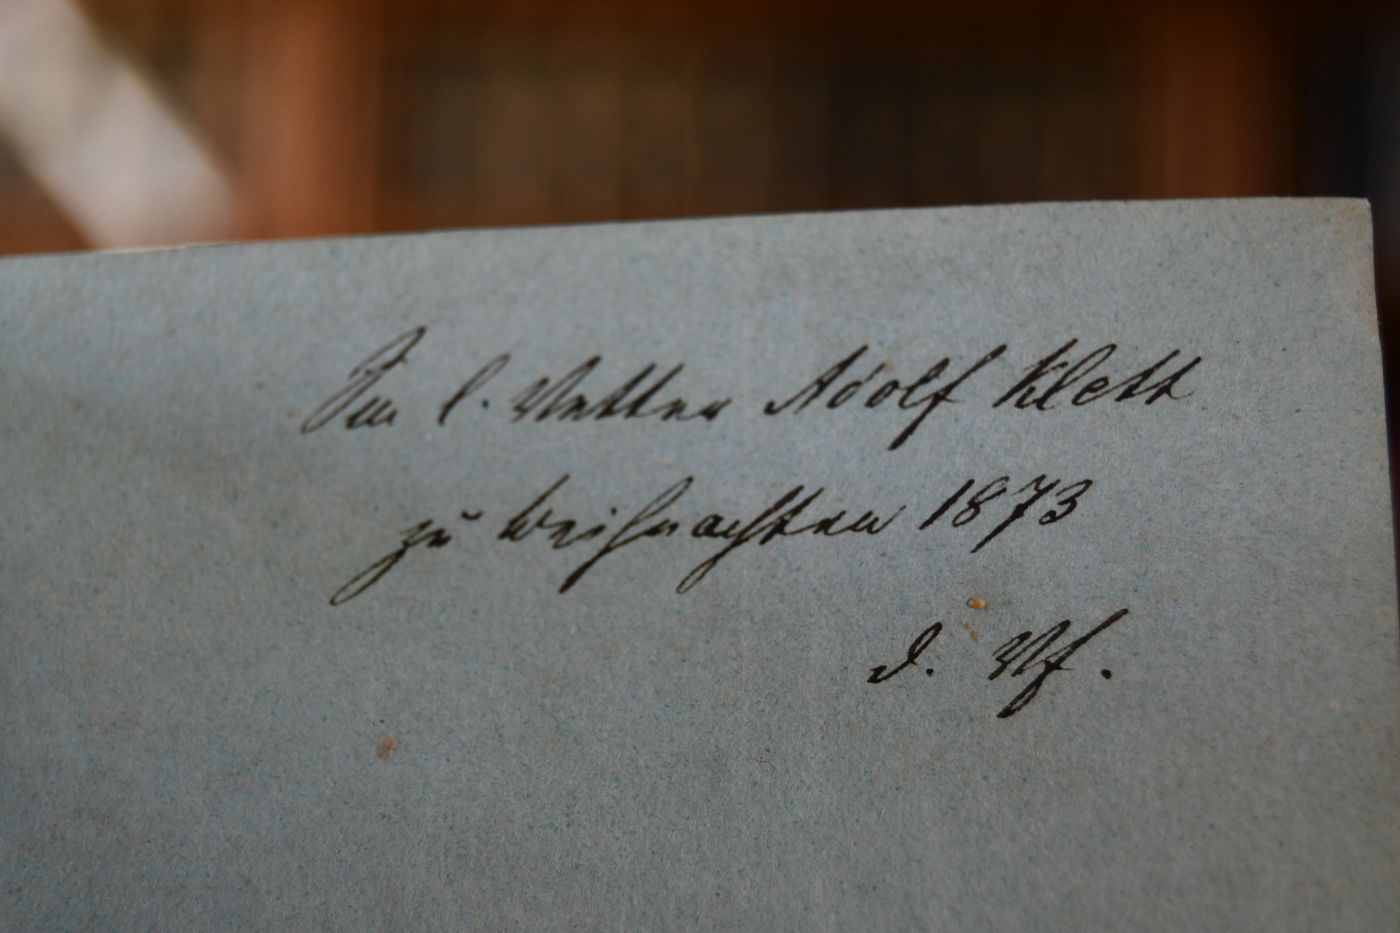 Sm l. Vetter Adolf Klett
zu Weihnachten 1873
d. Vf.